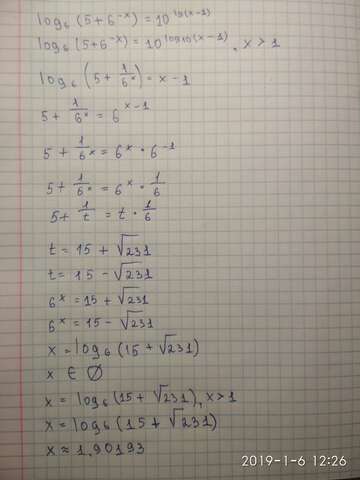 log₆(5+6⁻ˣ)=10^(lg(x-1))
log₆(5+6⁻ˣ)=10^(log10(x-1)), x>1
log₆(5+1/6ˣ)=x-1
5+1/6ˣ=6ˣ⁻¹
5+1/6ˣ=6ˣ·6⁻¹
5+1/6ˣ=6ˣ·1/6
5+1/t=t·1/6
t=15+√231
t=15-√231
6ˣ=15+√231
6ˣ=15-√231
x=log₆(15+√231)
x∈∅
x=log₆(15+√231), x>1
x=log₆(15+√231)
x≈1,90193
2019-1-6 12:26